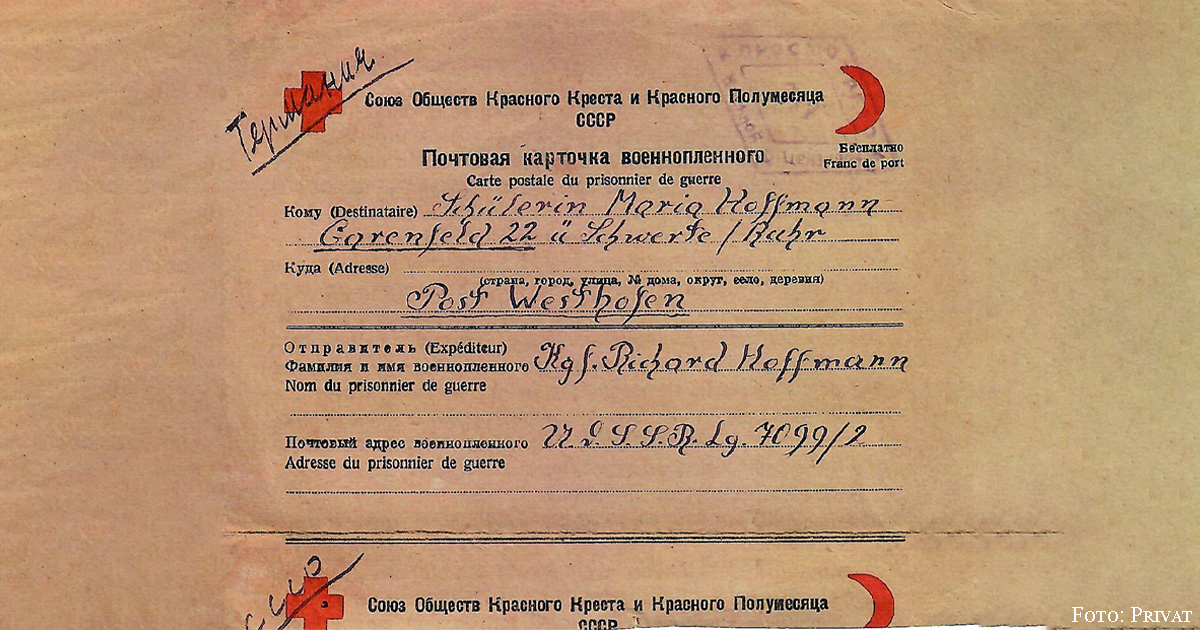 Германия
Союз Обществ Красного Креста и Красного Полумесяца
СССР
Бесплатно
Franc de port
Почтовая карточка военнопленного
Carte postale du prisonnier de guerre
Кому (Destinataire) Schülerin Maria Hoffmann
Garenfeld 22 ü Schwerte / Ruhr
Куда (Adresse)
(страна, город, улица, № дома, округ, село, деревня)
Post Westhofen
Отправитель (Expéditeur)
Фамилия и имя военнопленного Kgf. Richard Hoffmann
Nom du prisonnier de guerre
Почтовый адрес военнопленного U.d.S.S.R. Lg. 7099/2
Adresse du prisonnier de guerre
СССР
Союз Обществ Красного Креста и Красного Полумесяца
СССР
Foto: Privat